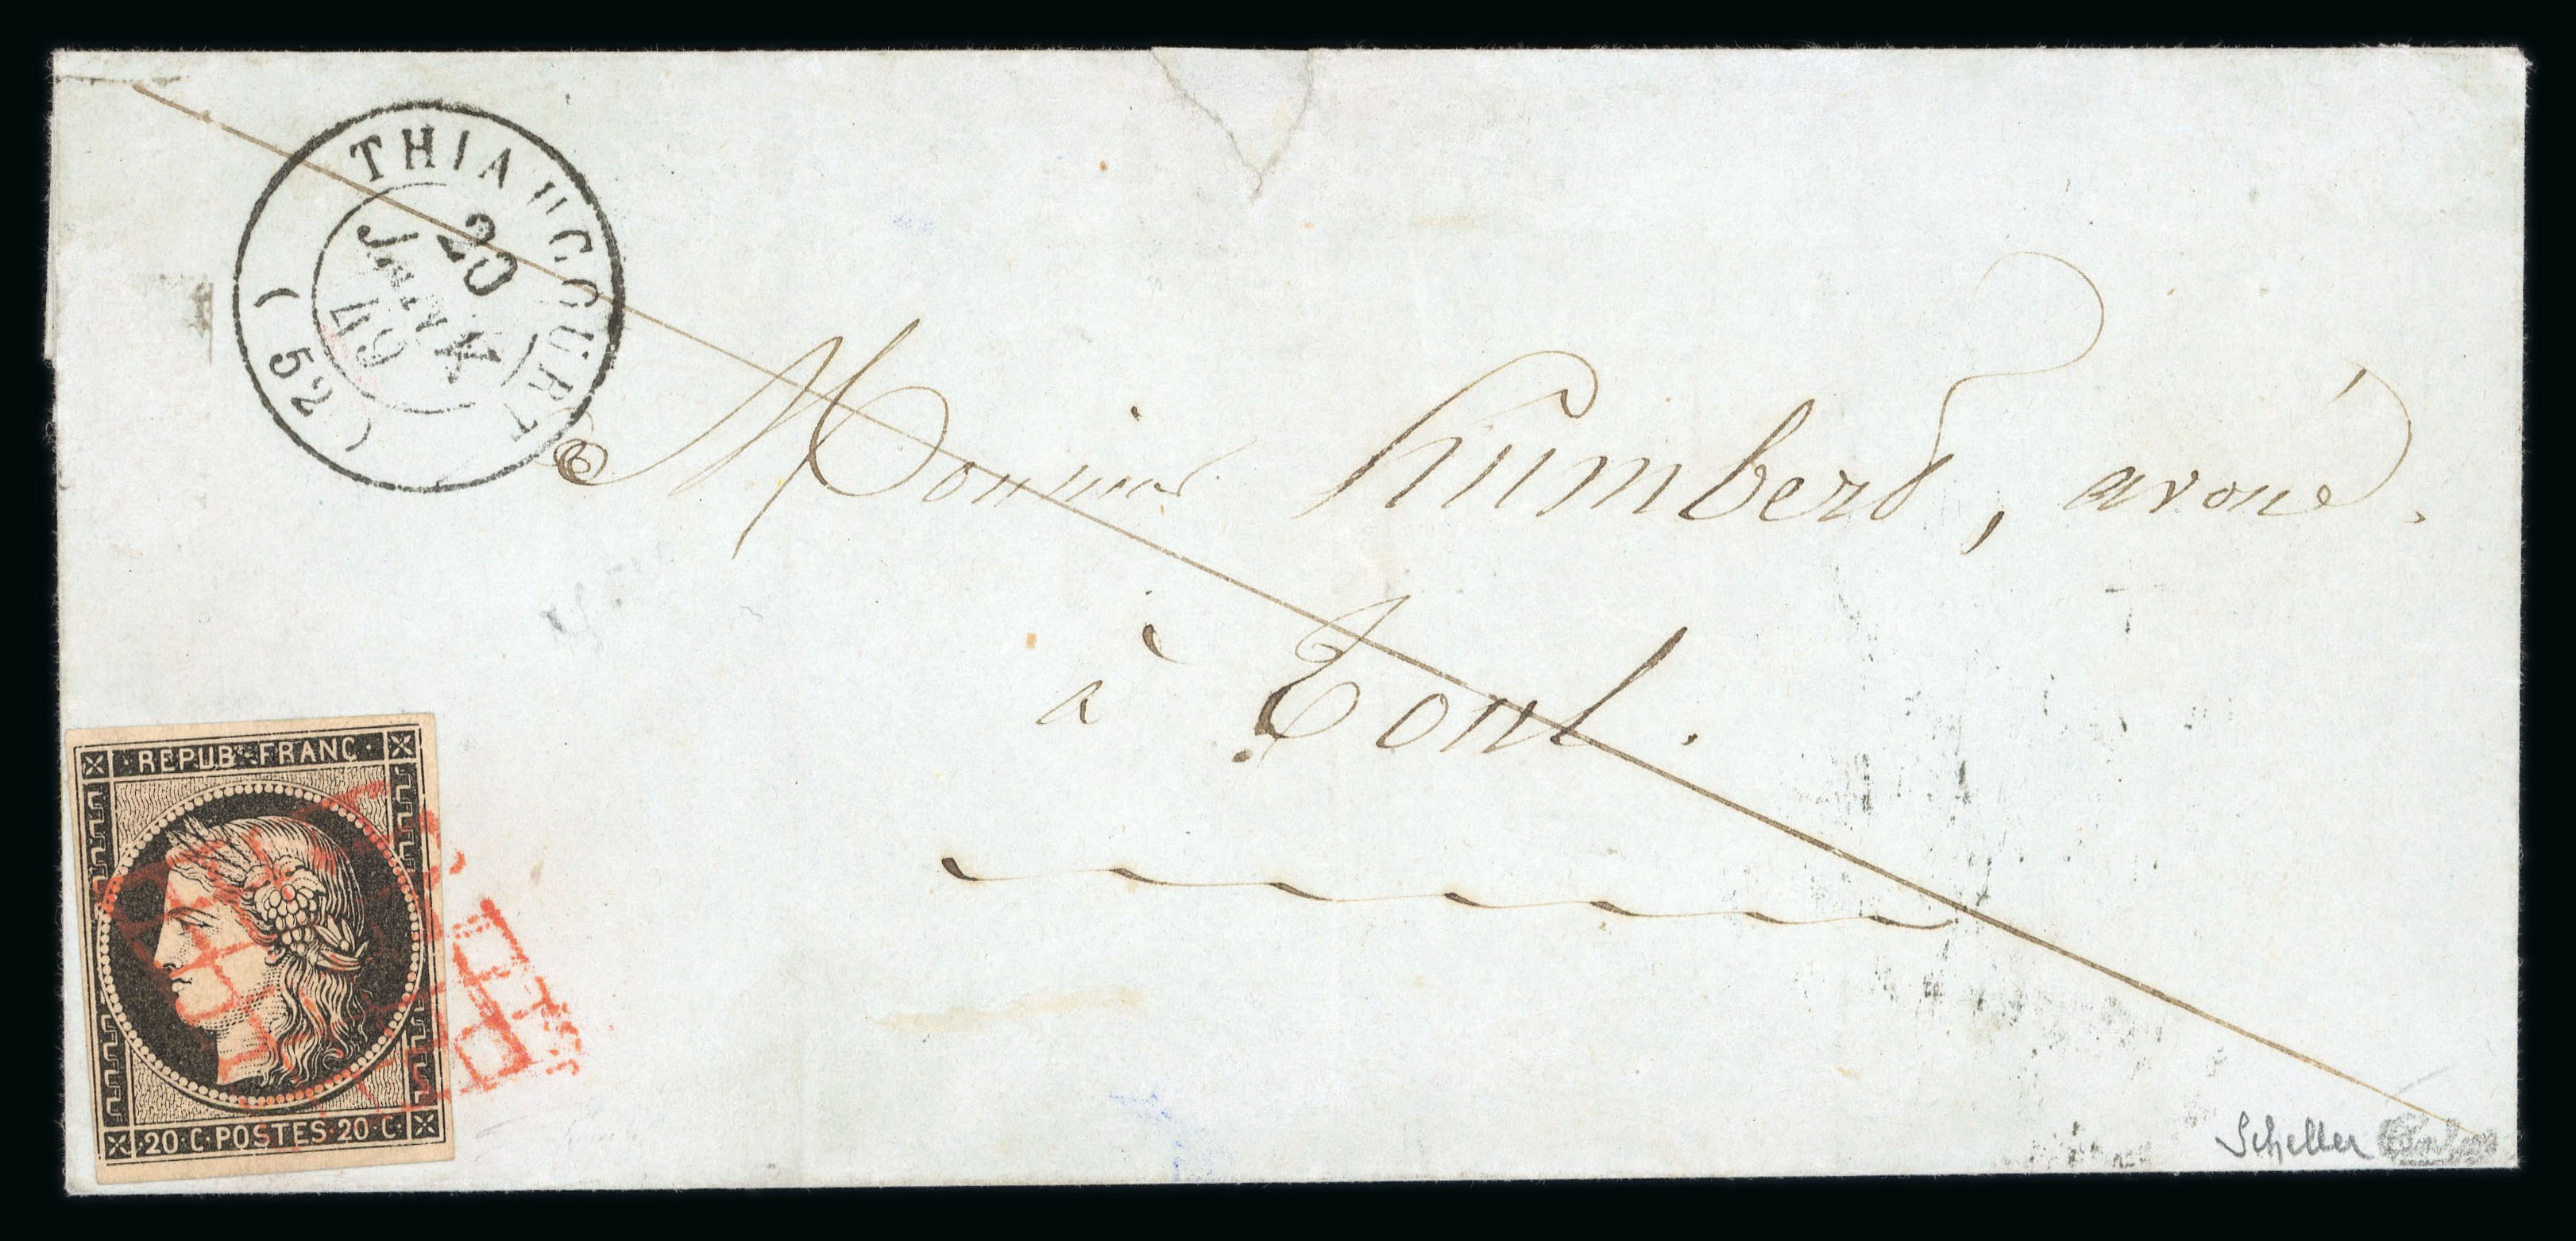 THIAUCOURT
20
JANV.
49
(52)
Monsieur humbert, avoué.
à Toul.
· REPUB. FRANC ·
· 20 · C · POSTES · 20 · C ·
Scheller